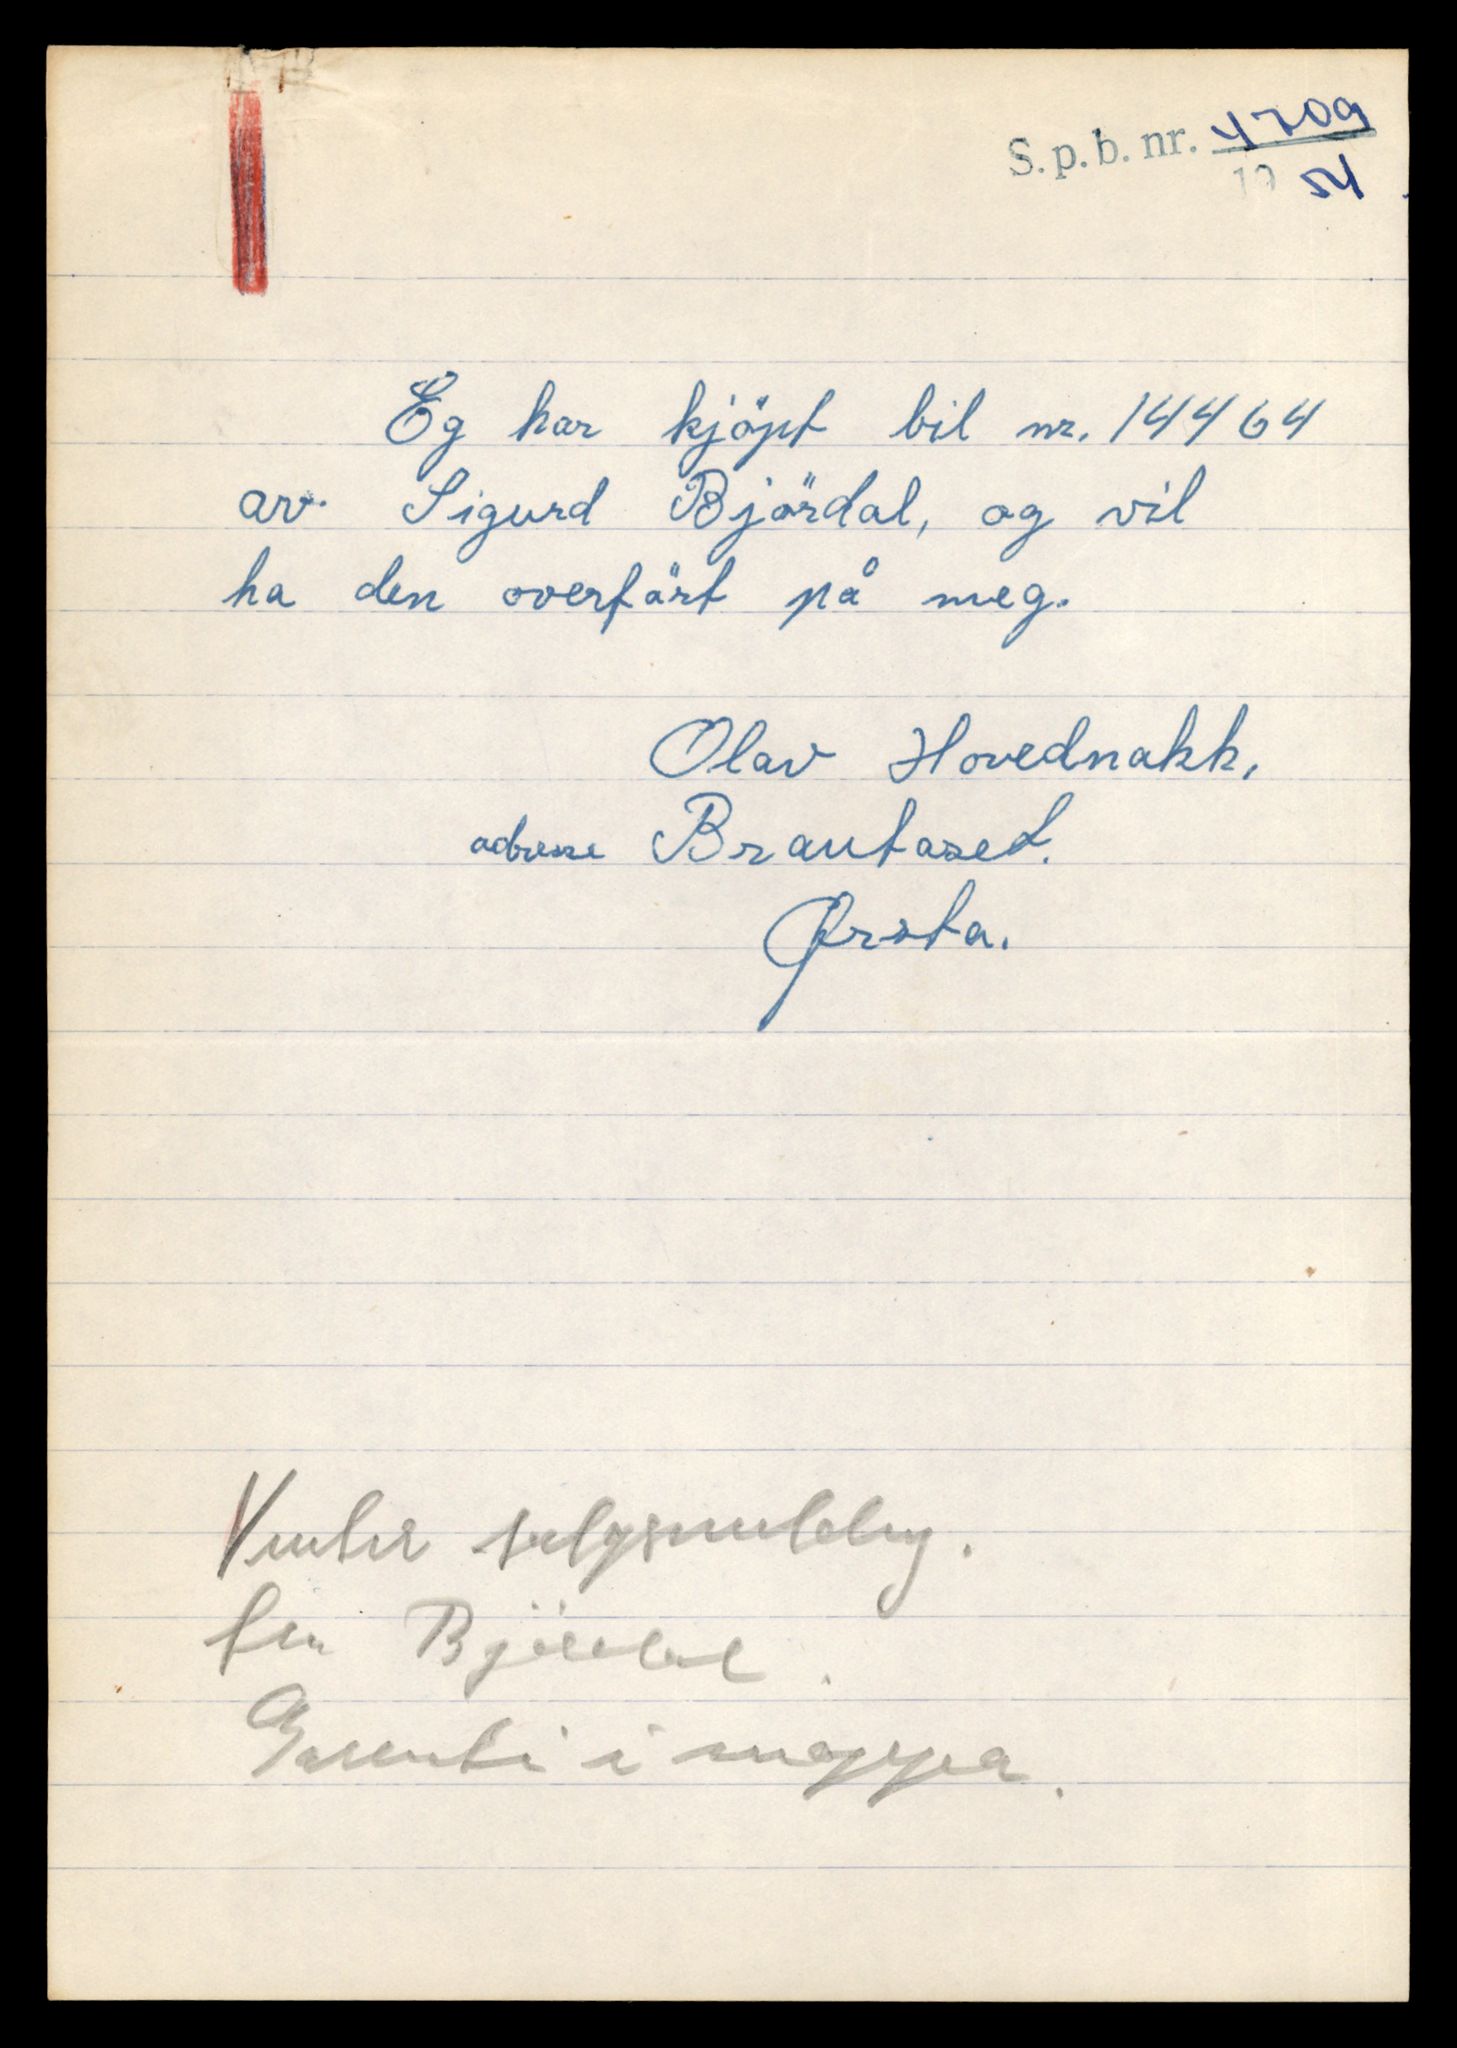 S.p.b. nr. 4709
19 54
Eg har kjöpt bil nr. 14464
av Sigurd Björdal, og vil
ha den overfört på meg.
Olav Hovednakk,
adresse Brautaset.
Ørsta.
Venter salgsmelding.
fra Björdal.
Garanti i mappa.